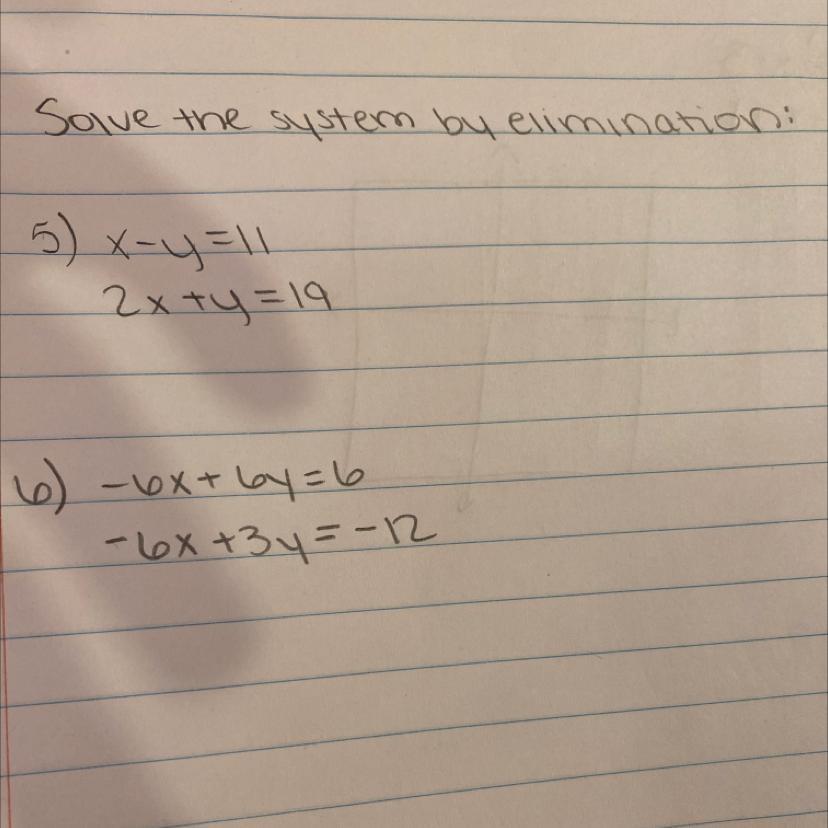 Solve the system by elimination:
5) x-y=11
2x+y=19
6) -6x+6y=6
-6x+3y=-12